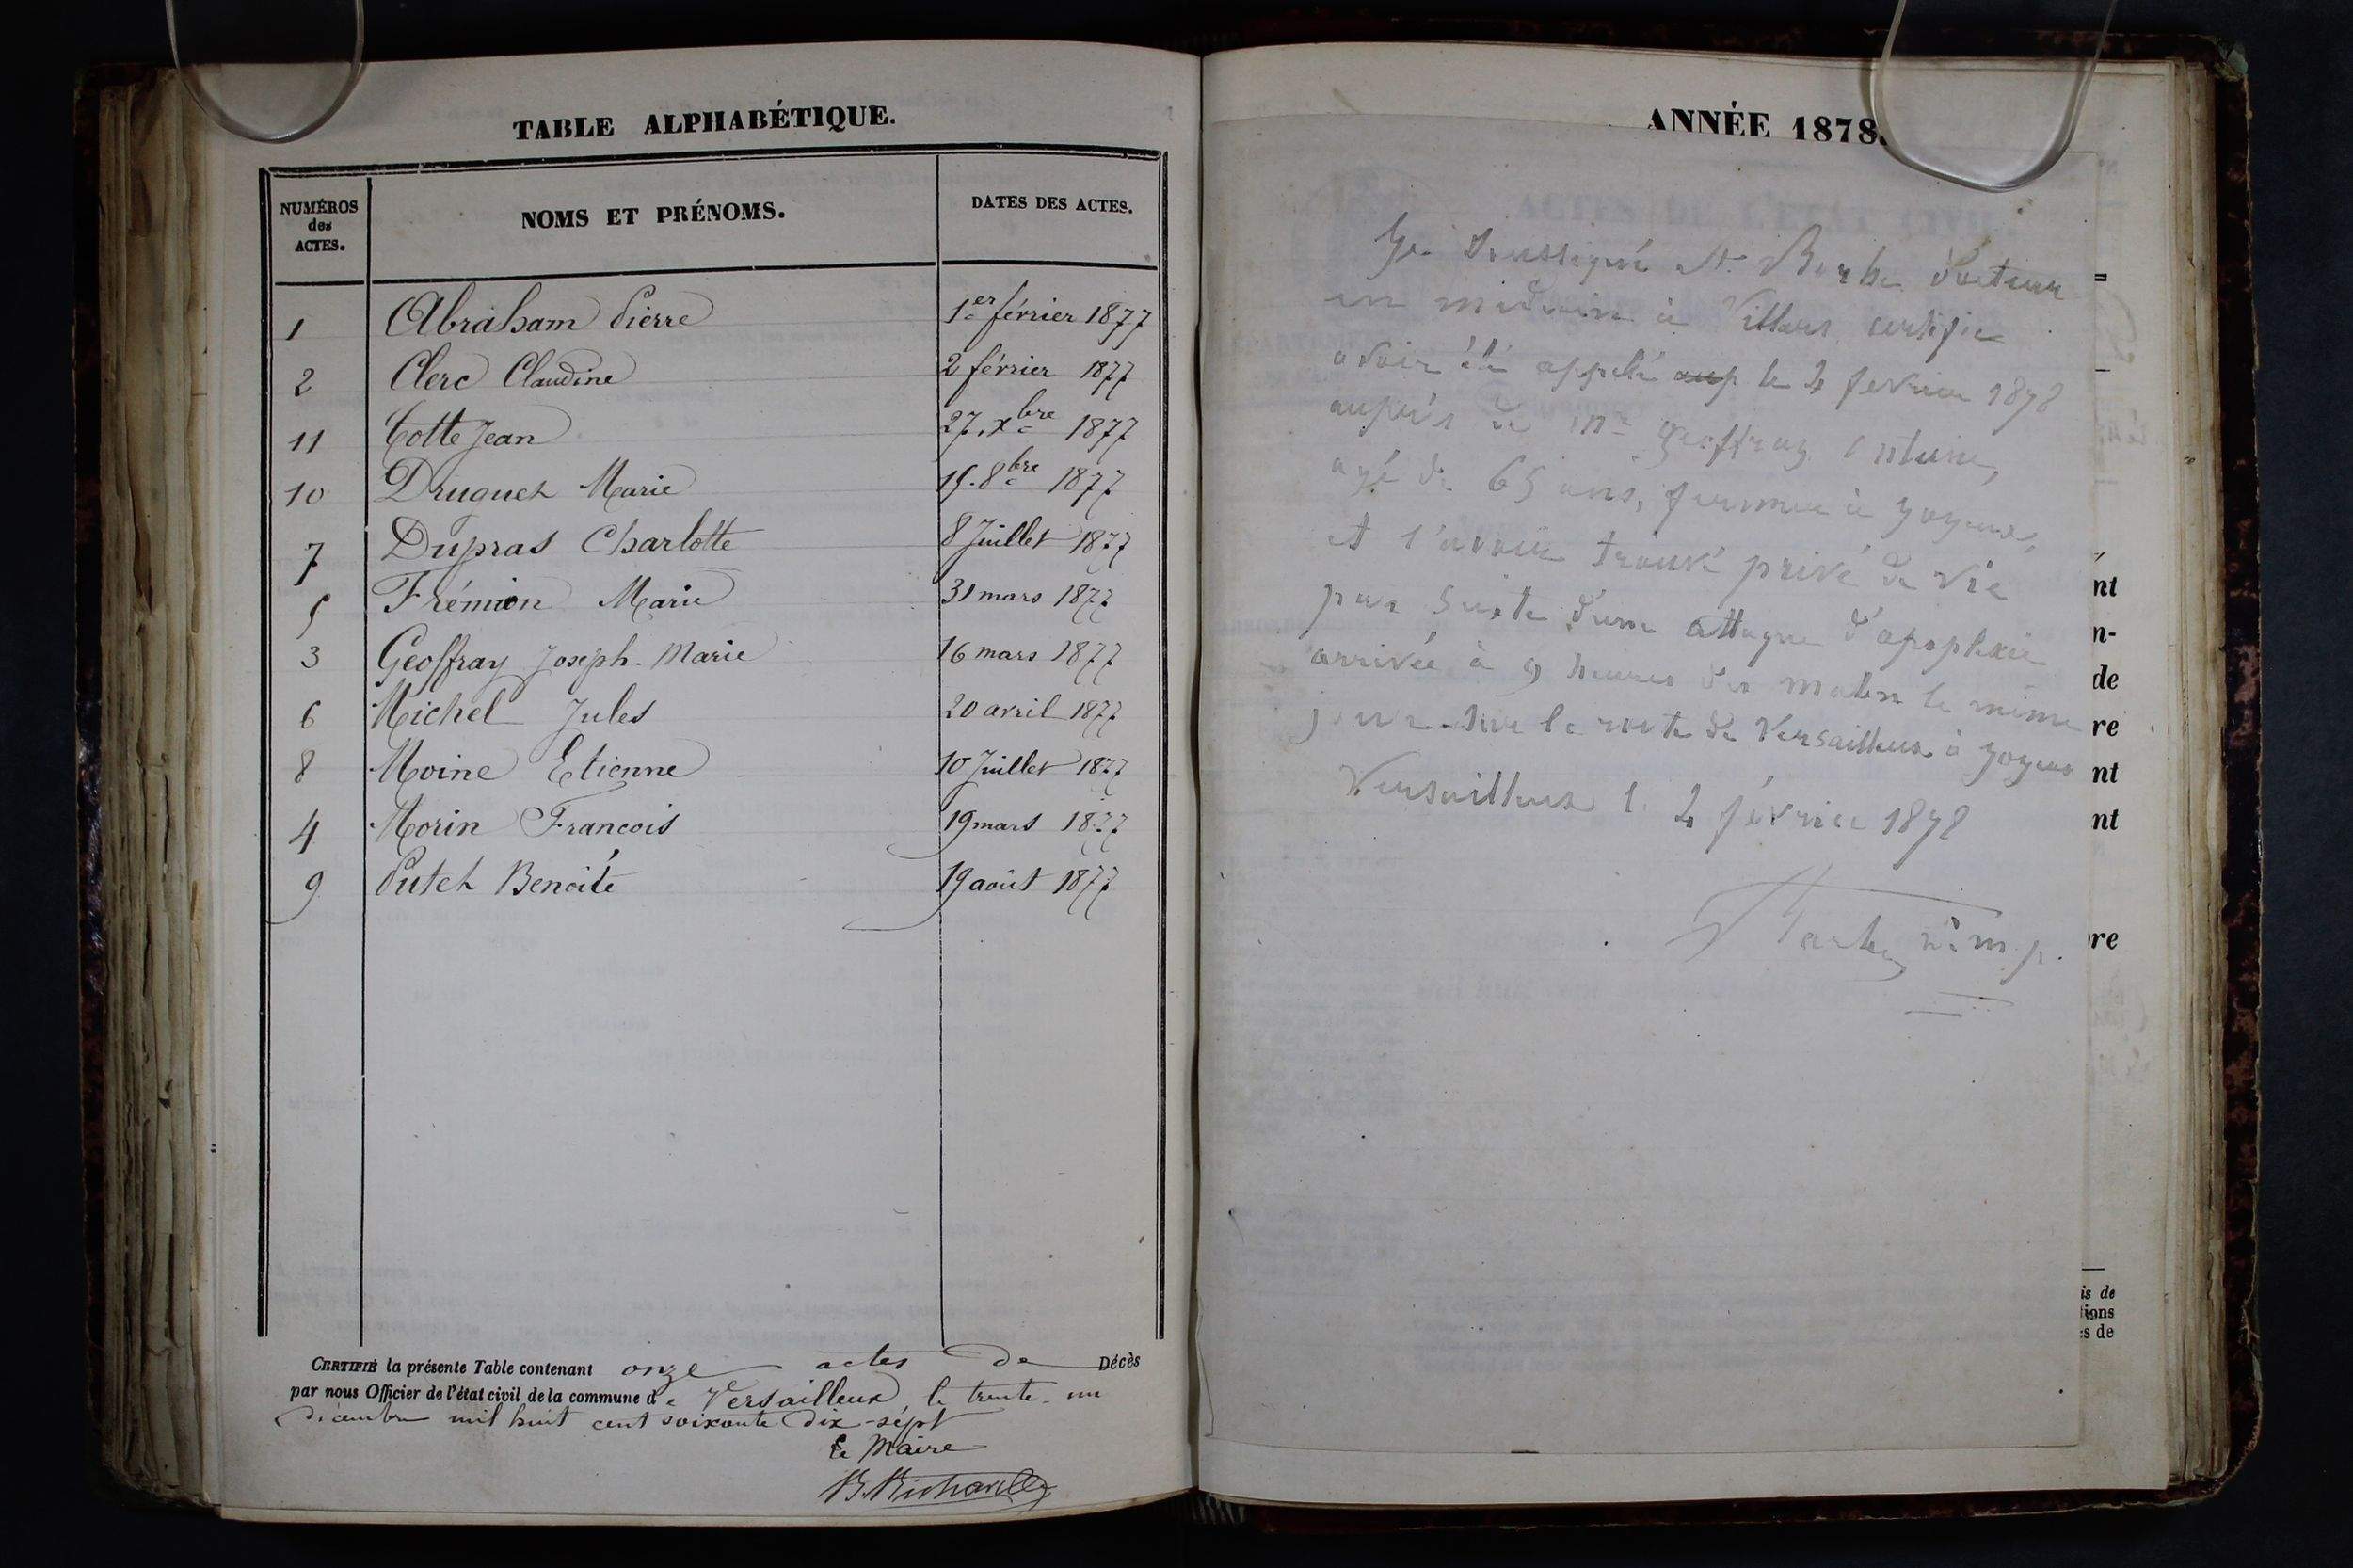 TABLE ALPHABÉTIQUE.
NUMÉROS
des
ACTES.
NOMS ET PRÉNOMS.
DATES DES ACTES.
1 Abraham Pierre 1er février 1877
2 Clerc Claudine 2 février 1877
11 Cotte Jean 27. xbre 1877
10 Druguet Marie 15. 8bre 1877
7 Dupras Charlotte 8 Juillet 1877
5 Frémion Marie 31 mars 1877
3 Geoffray Joseph-Marie 16 mars 1877
6 Michel Jules 20 avril 1877
8 Moine Etienne 10 Juillet 1877
4 Morin Francois 19 mars 1877
9 Putet Benoite 19 août 1877
CERTIFIÉ la présente Table contenant onze actes de Décès
par nous Officier de l'état civil de la commune de Versailleux, le trente-un
décembre mil huit cent soixante dix-sept
Le Maire
ANNÉE 1878.
Je soussigné Docteur
en médecine à Villars certifie
avoir été appelé le 2 février 1878
auprès de Mr Geoffray Antoine,
agé de 65 ans, fermier à Joyeux,
et l'avoir trouvé privé de vie
par suite d'une attaque d'apoplexie
arrivée à 9 heures du matin le même
jour sur la route de Versailleux à Joyeux
Versailleux le 2 février 1878
nt
n-
de
re
nt
nt
re
is de
tions
es de